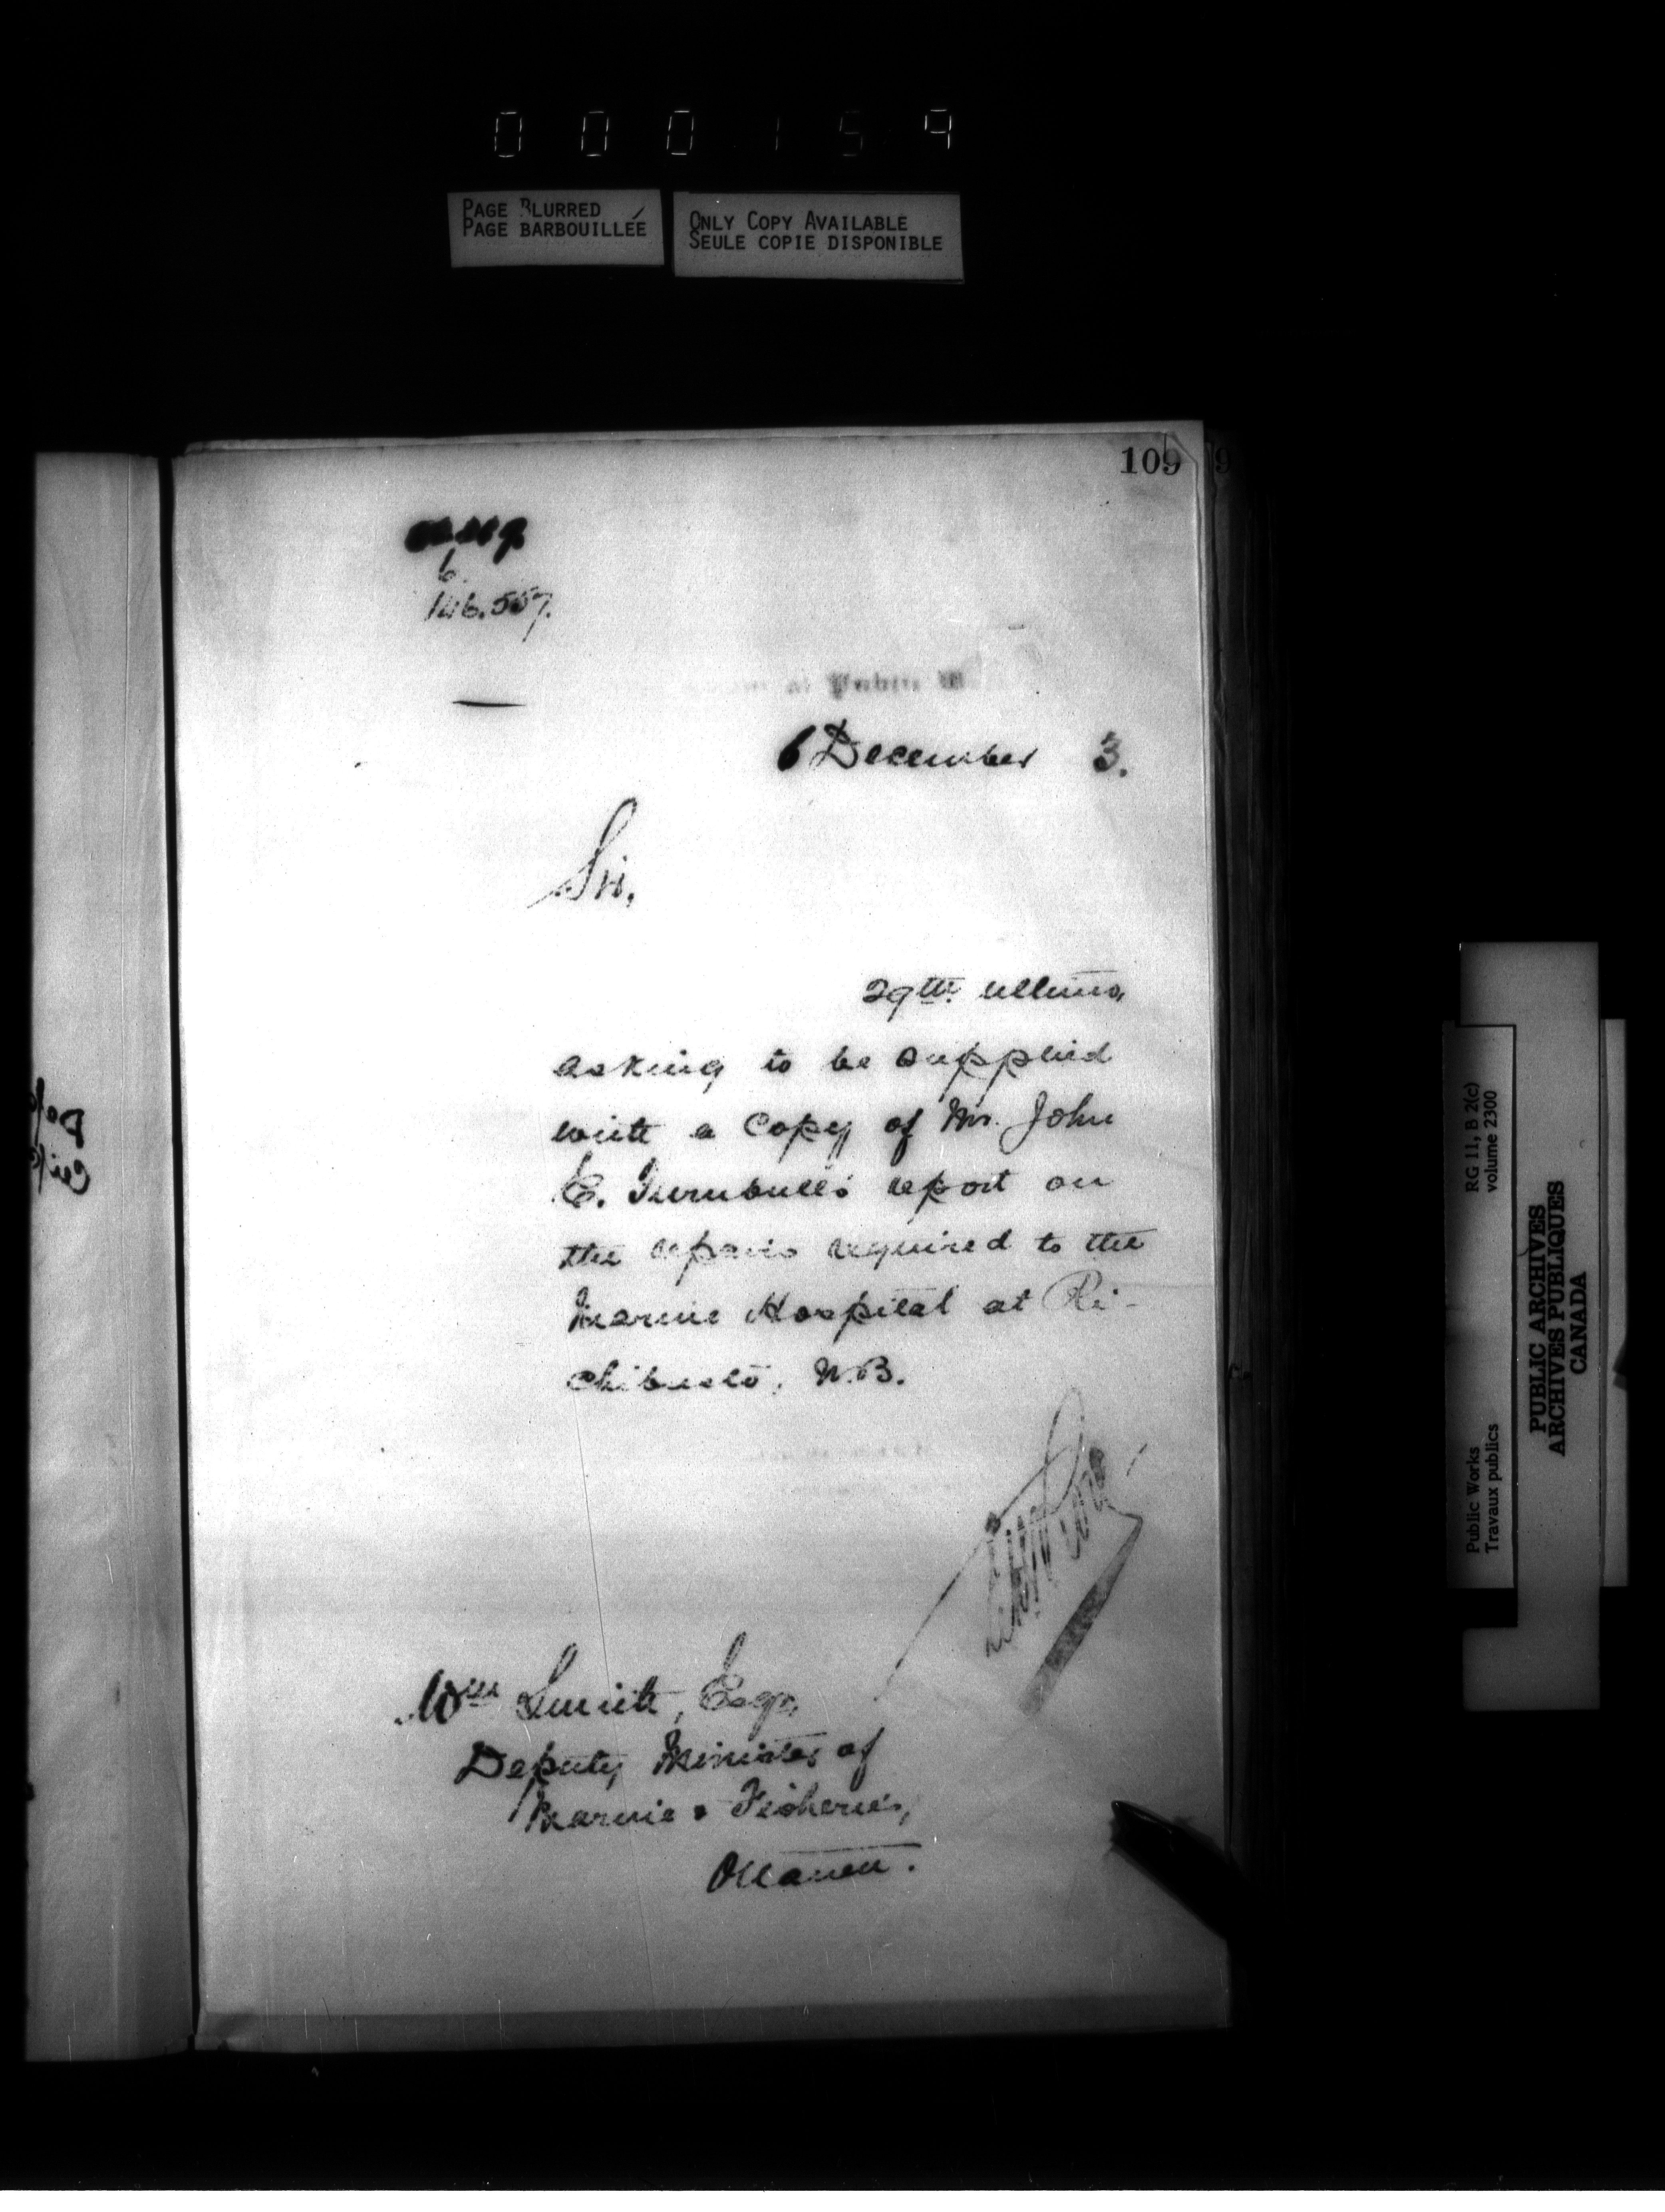 000159
PAGE BLURRED
PAGE BARBOUILLÉE
ONLY COPY AVAILABLE
SEULE COPIE DISPONIBLE
109
6
146.557.
6 December 3.
Sir,
29th. ultimo,
asking to be supplied
with a copy of Mr. John
E. Turnbull's report on
the repairs required to the
Marine Hospital at Ri-
chibucto, N.B.
Wm Smith, Esqr,
Deputy Minister of
Marine & Fisheries,
Ottawa.
Public Works
Travaux publics
RG 11, B 2(c)
volume 2300
PUBLIC ARCHIVES
ARCHIVES PUBLIQUES
CANADA